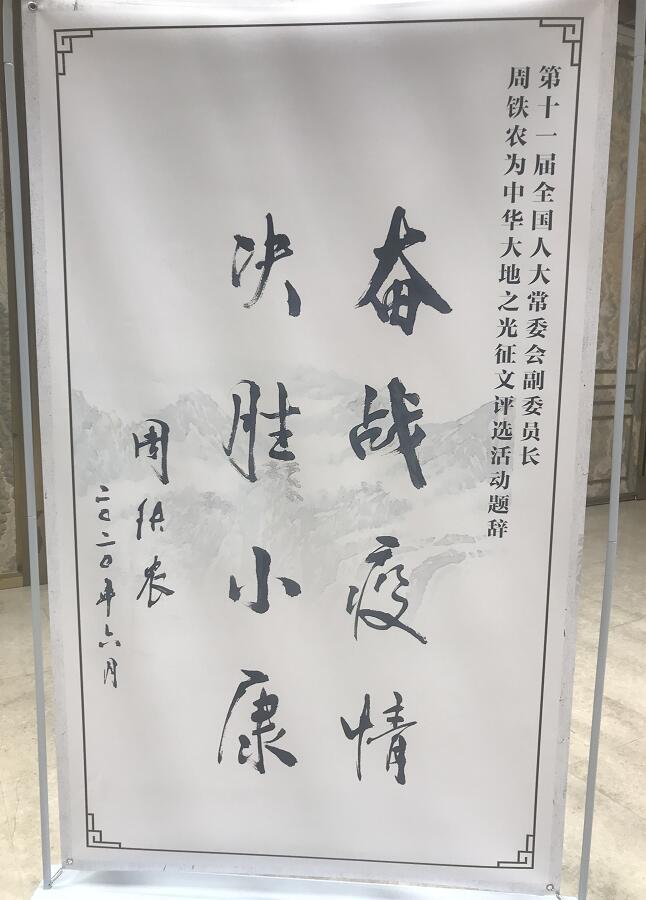 第十一届全国人大常委会副委员长
周铁农为中华大地之光征文评选活动题辞
奋战疫情
决胜小康
周铁农
二〇二〇年六月